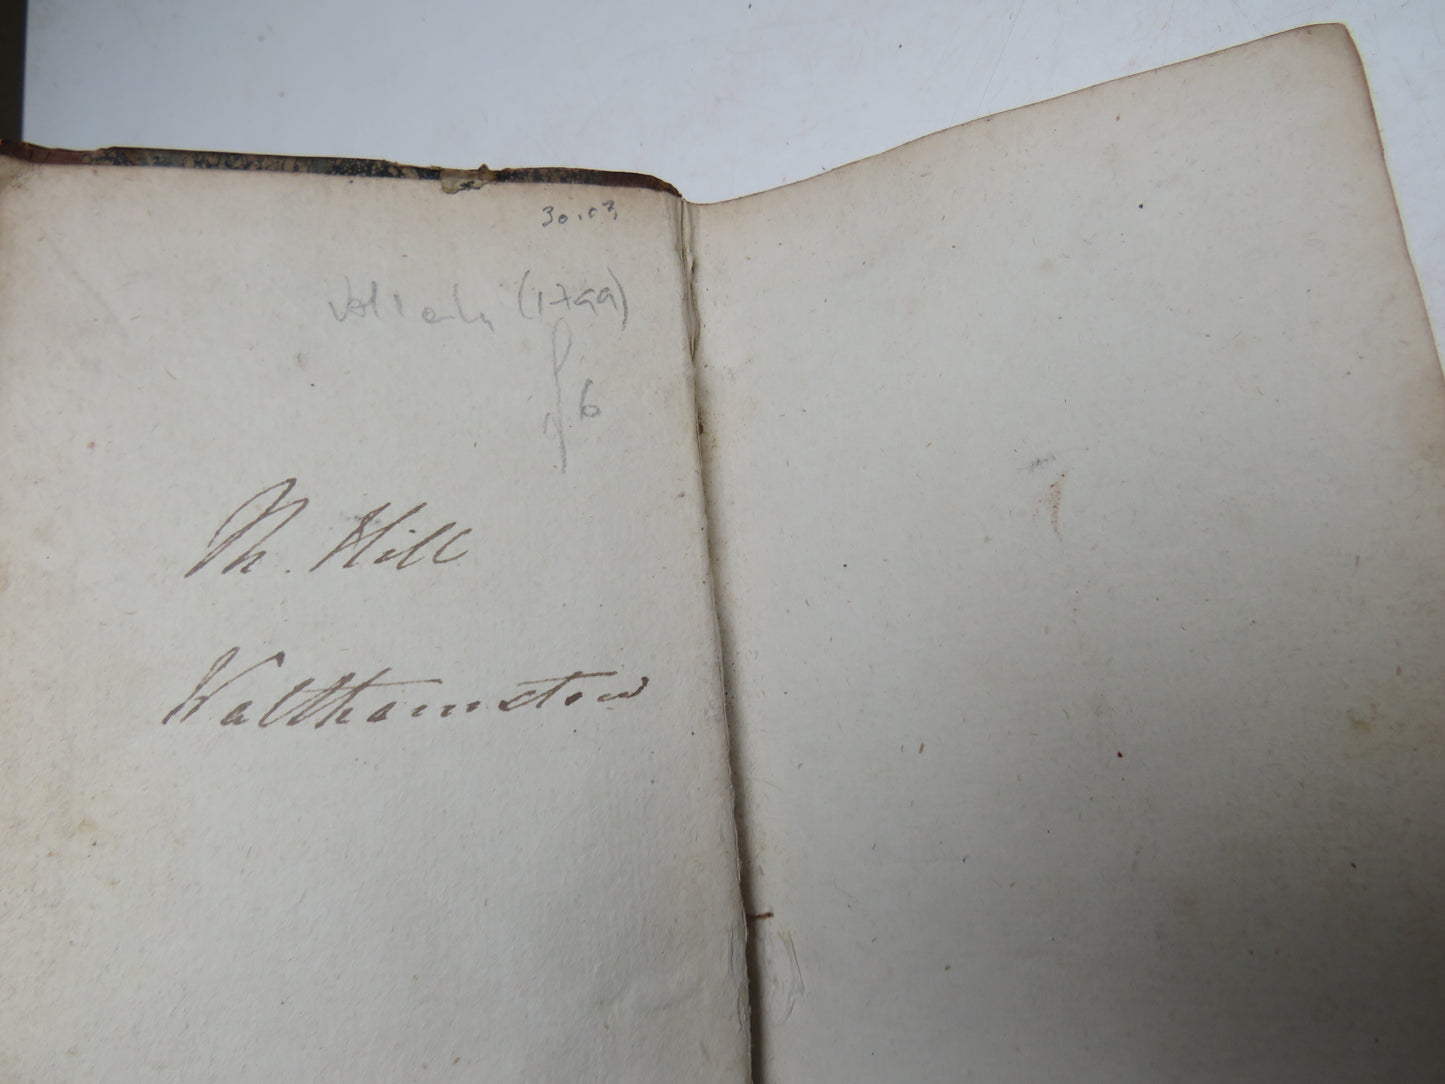 30.03
Vol 1 only (1799)
£6
Th. Hill
Walthamstow